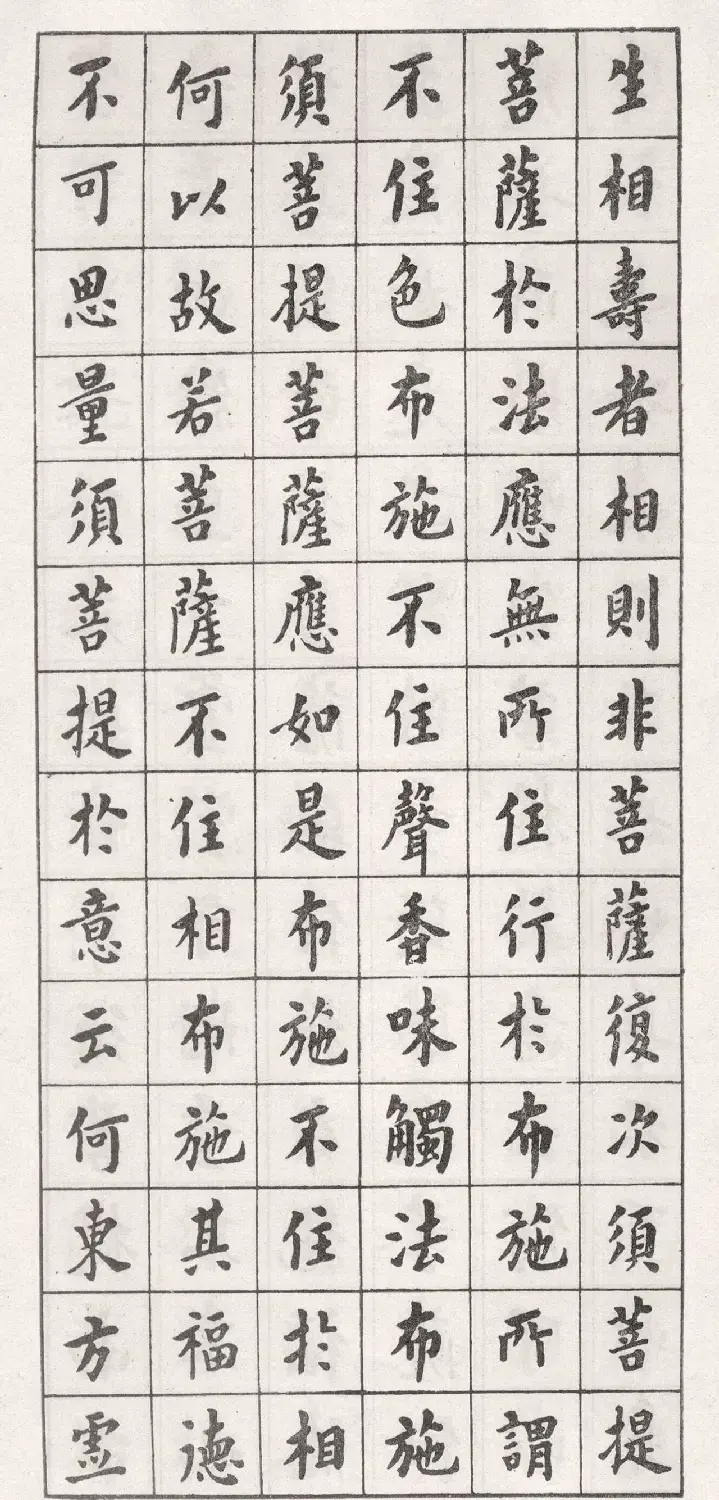 生相壽者相則非菩薩復次須菩提
菩薩於法應無所住行於布施所謂
不住色布施不住聲香味觸法布施
須菩提菩薩應如是布施不住於相
何以故若菩薩不住相布施其福德
不可思量須菩提於意云何東方虛